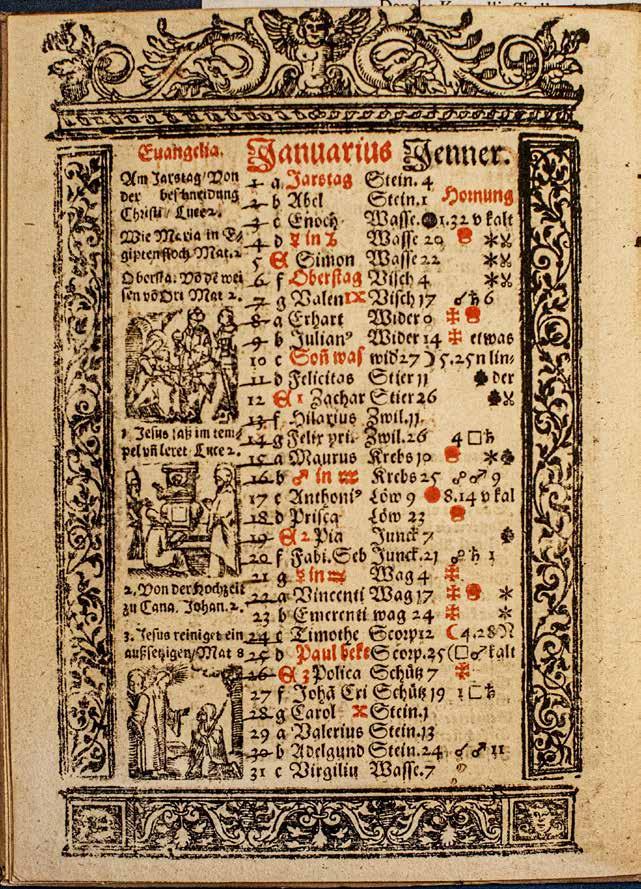 Euangelia.
Januarius Jenner.
Am Jarstag/Von
der beschneidung
Christi/Luce 2.
Wie Maria in E⸗
giptenfloch Mat. 2.
Obersta. Võ dẽ wei
sen võ Ori Mat 2.
1. Jesus saß im tem
pel vñ leret Luce 2.
2. Von der Hochzeit
zu Cana. Johan. 2.
3. Jesus reiniget ein
außsetzigen/Mat 8
1 a Jarstag Stein. 4
Hornung
2 b Abel Stein. 1
3 c Enoch Wasse. 1.32 v kalt
4 d ☿ in ♑ Wasse 20 ✶
5 E Simon Wasse 22 ✶
6 f Oberstag Visch 4 ✶
7 g Valen IX Visch 17 ☌ ♄ 6
8 a Erhart Wider 0 ✠
9 b Julianꝰ Wider 14 ✠ etwas
10 c Soñ was wid 27 ☽ 5.25 n lin⸗
11 d Felicitas Stier 11 der
12 E 1 Zachar Stier 26
13 f Hilarius Zwil. 11.
14 g Felix pri. Zwil. 26 4 □ ♄
15 a Maurus Krebs 10 ✶
16 b ♂ in ♒ Krebs 25 ☍ ♂ 9
17 c Anthoniꝰ Löw 9 8.14 v kal
18 d Prisca Löw 23
19 E 2 Pia Junck 7
20 f Fabi. Seb Junck. 21 ☍ ♄ 1
21 g ☿ in ♒ Wag 4 ✠
22 a Vincenti Wag 17 ✠ ✶
23 b Emerenti wag 24 ✠ ✶
24 c Timothe Scorp 12 ☾ 4.28 N
25 d Paul beke Scorp. 25 (□ ♂ kalt
26 E 3 Polica Schütz 7 ✠
27 f Johã Cri Schütz 19 1 □ ♄
28 g Carol X Stein. 1
29 a Valerius Stein. 13
30 b Adelgund Stein. 24 ☌ ♂ 11
31 c Virgiliu Wasse. 7